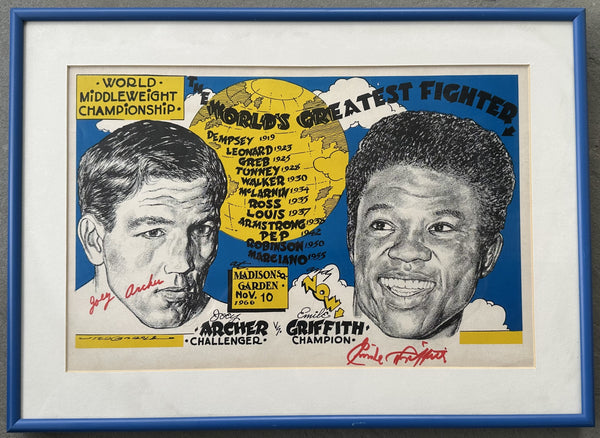 ·WORLD·
MIDDLEWEIGHT
CHAMPIONSHIP·
THE WORLD'S GREATEST FIGHTER
DEMPSEY 1919
LEONARD 1923
GREB 1925
TUNNEY 1926
WALKER 1930
McLARNIN 1934
ROSS 1935
LOUIS 1937
ARMSTRONG 1938
PEP 1942
ROBINSON 1950
MARCIANO 1955
at
MADISON SQ
GARDEN
NOV. 10
1966
and
NOW!
Joey Archer
Joey
ARCHER
CHALLENGER·
Vs.
Emile
GRIFFITH
CHAMPION·
Emile Griffith